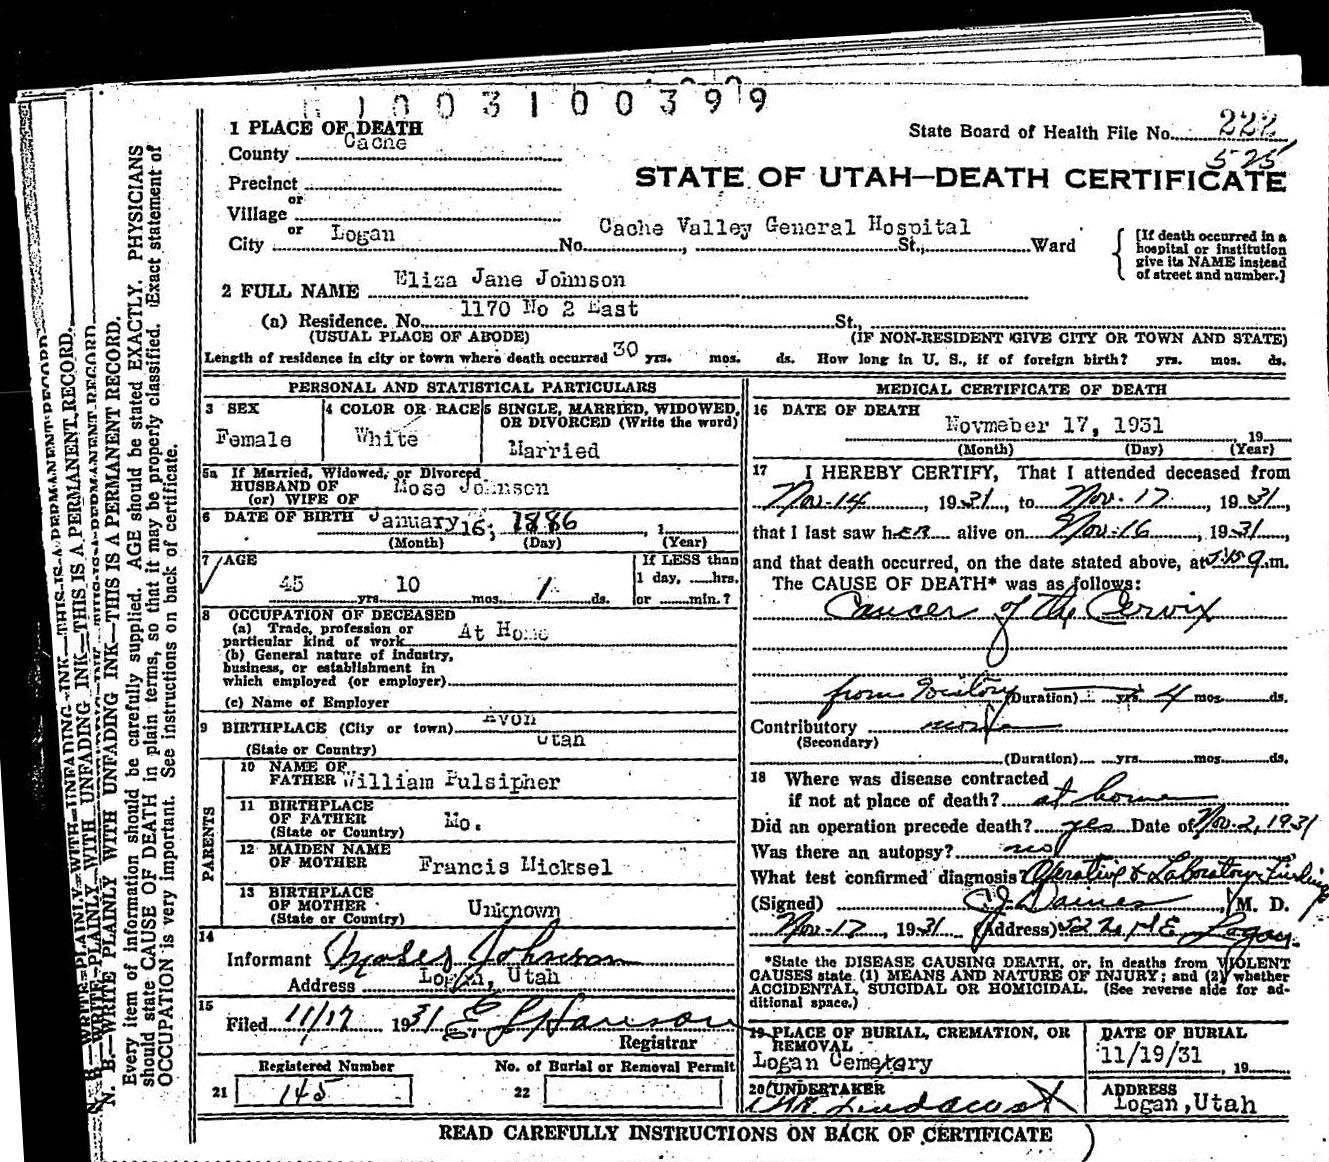 1003100399
1 PLACE OF DEATH
State Board of Health File No. 222
525
County Cache
STATE OF UTAH—DEATH CERTIFICATE
Precinct
or
Village
or
City Logan No. Cache Valley General Hospital St., Ward
[If death occurred in a
hospital or institution
give its NAME instead
of street and number.]
2 FULL NAME Eliza Jane Johnson
(a) Residence. No. 1170 No 2 East St.,
(USUAL PLACE OF ABODE) (IF NON-RESIDENT GIVE CITY OR TOWN AND STATE)
Length of residence in city or town where death occurred 30 yrs. mos. ds. How long in U. S., if of foreign birth? yrs. mos. ds.
PERSONAL AND STATISTICAL PARTICULARS
3 SEX
Female
4 COLOR OR RACE
White
5 SINGLE, MARRIED, WIDOWED,
OR DIVORCED (Write the word)
Married
5a If Married, Widowed, or Divorced
HUSBAND OF
(or) WIFE OF Mose Johnson
6 DATE OF BIRTH January 16, 1886 1
(Month) (Day) (Year)
7 AGE
45 yrs. 10 mos. 1 ds.
If LESS than
1 day, hrs.
or min.?
8 OCCUPATION OF DECEASED
(a) Trade, profession or
particular kind of work At Home
(b) General nature of industry,
business, or establishment in
which employed (or employer)
(c) Name of Employer
9 BIRTHPLACE (City or town) Avon
(State or Country) Utah
PARENTS
10 NAME OF
FATHER William Pulsipher
11 BIRTHPLACE
OF FATHER Mo.
(State or Country)
12 MAIDEN NAME
OF MOTHER Francis Micksel
13 BIRTHPLACE
OF MOTHER Unknown
(State or Country)
14
Informant Moses Johnson
Address Logan, Utah
15
Filed 11/17 1931
Registrar
Registered Number
21 145
No. of Burial or Removal Permit
22
MEDICAL CERTIFICATE OF DEATH
16 DATE OF DEATH
Novmeber 17, 1931 19
(Month) (Day) (Year)
17 I HEREBY CERTIFY, That I attended deceased from
Nov-14, 1931, to Nov-17, 1931,
that I last saw her alive on Nov-16, 1931,
and that death occurred, on the date stated above, at m.
The CAUSE OF DEATH* was as follows:
Cancer of the Cervix
from history (Duration) yrs. 4 mos. ds.
Contributory
(Secondary)
(Duration) yrs. mos. ds.
18 Where was disease contracted
if not at place of death? at home
Did an operation precede death? yes Date of Nov. 2, 1931
Was there an autopsy? no
What test confirmed diagnosis? Operative & Laboratory
(Signed) Daines, M. D.
Nov-17, 1931 (Address) Logan.
*State the DISEASE CAUSING DEATH, or, in deaths from VIOLENT
CAUSES state (1) MEANS AND NATURE OF INJURY; and (2) whether
ACCIDENTAL, SUICIDAL OR HOMICIDAL. (See reverse side for ad-
ditional space.)
19 PLACE OF BURIAL, CREMATION, OR
REMOVAL
Logan Cemetory
DATE OF BURIAL
11/19/31, 19
20 UNDERTAKER
ADDRESS
Logan, Utah
READ CAREFULLY INSTRUCTIONS ON BACK OF CERTIFICATE
N. B.—WRITE PLAINLY WITH UNFADING INK—THIS IS A PERMANENT RECORD.
Every item of information should be carefully supplied. AGE should be stated EXACTLY. PHYSICIANS
should state CAUSE OF DEATH in plain terms, so that it may be properly classified. Exact statement of
OCCUPATION is very important. See instructions on back of certificate.